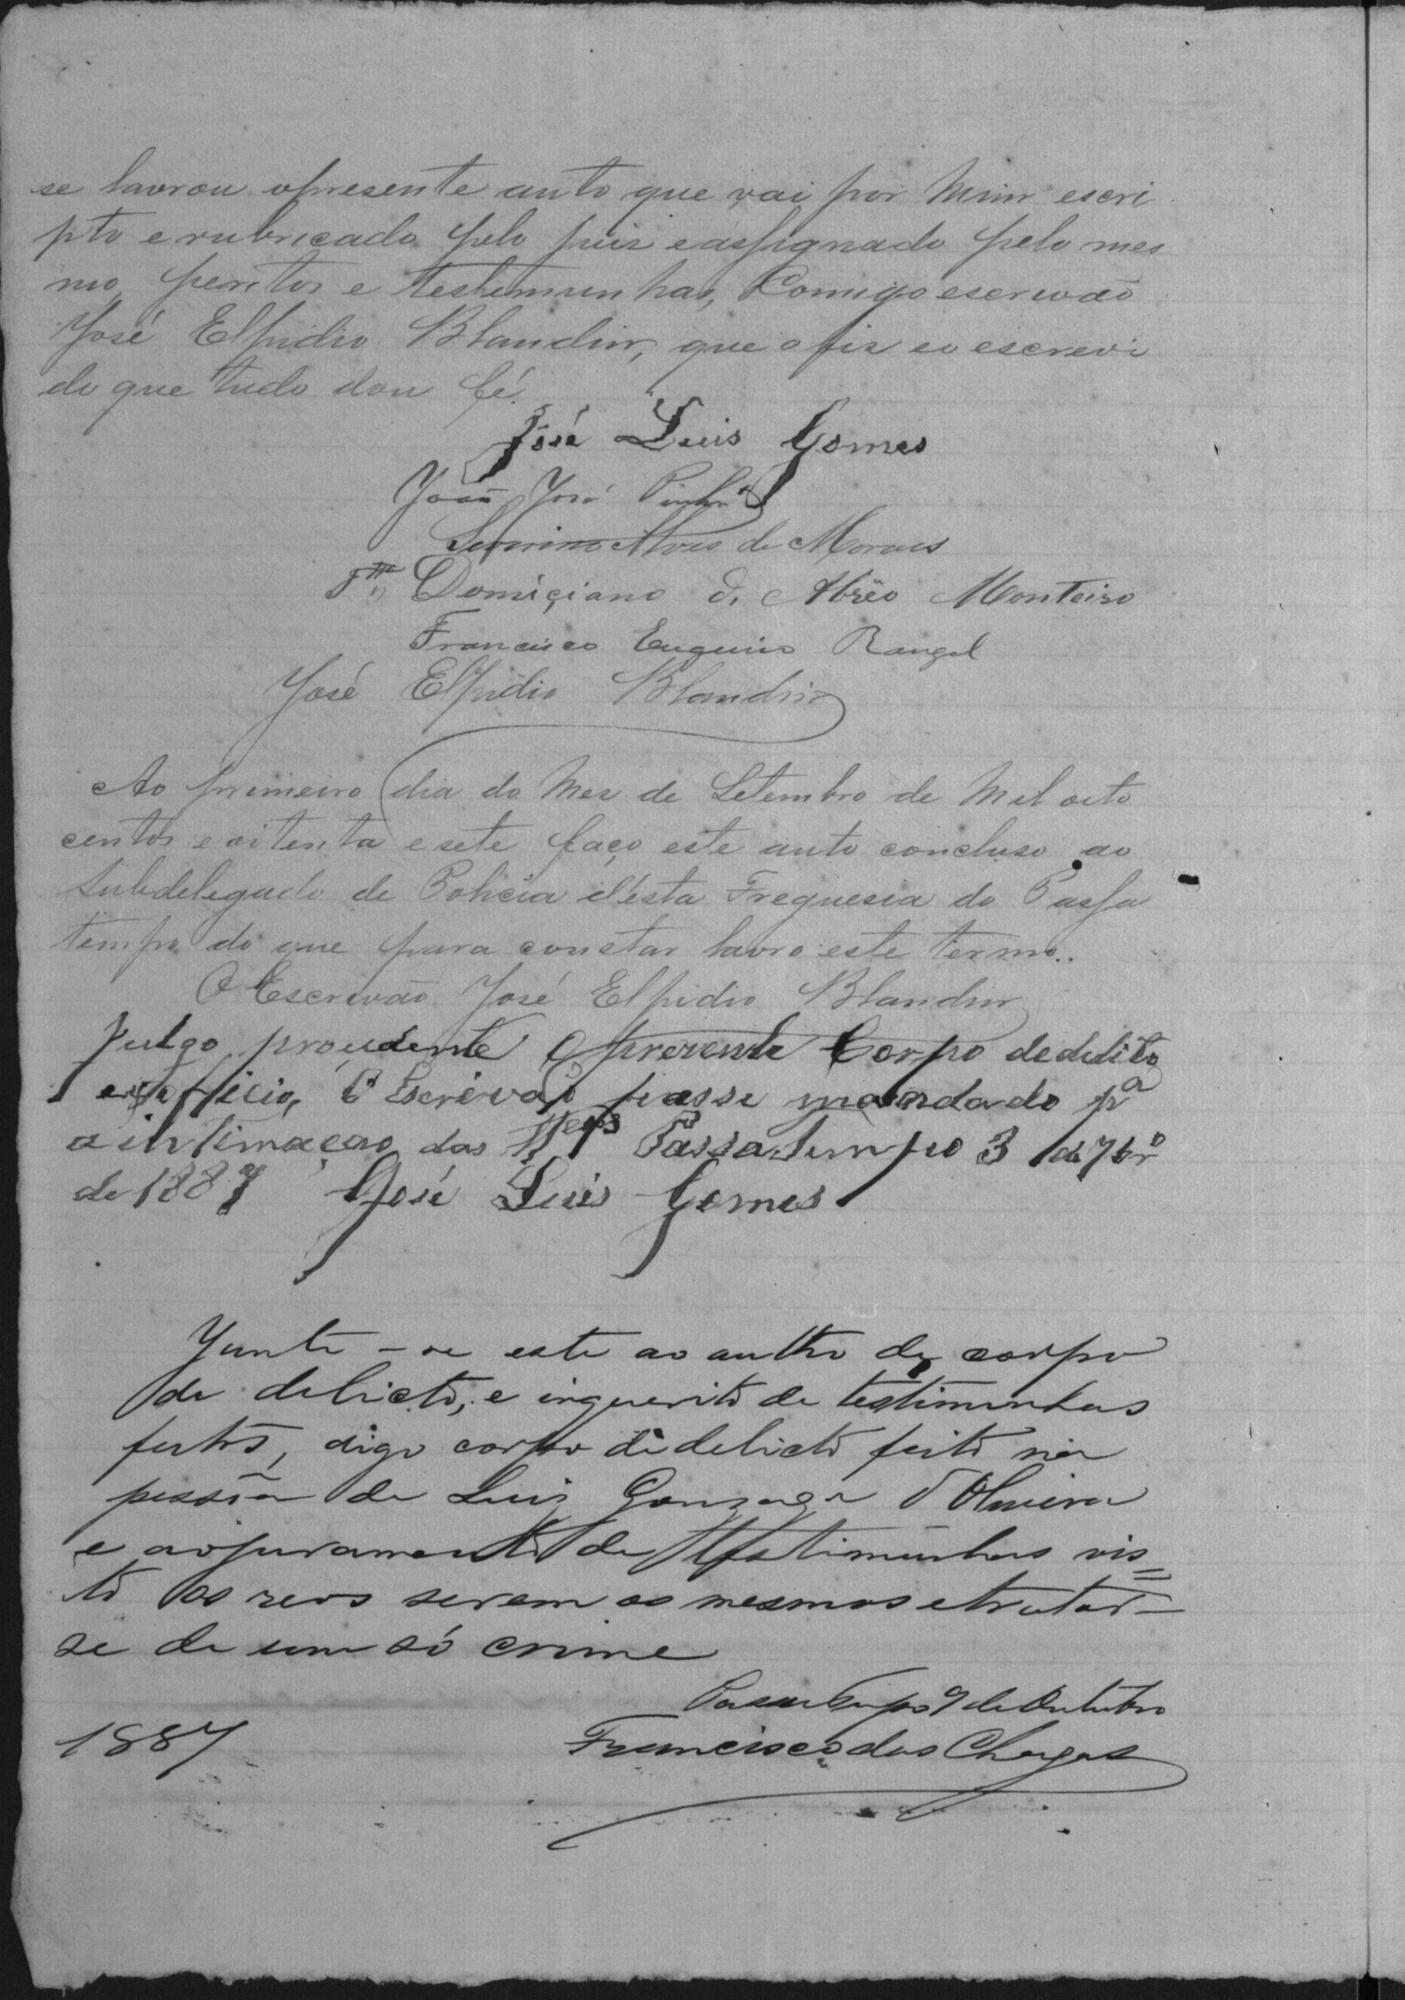 se lavrou opresente auto que vai por mim escri
pto e rubricado pelo juiz eassignado pelo mes
mo, peritos e testemunhas, Comigo escrivão
José Elpidio Blandin, que o fiz eo escrevi
do que tudo dou fé.
José Luis Gomes
João José Pinhr.º
Severino Alves de Moraes
Domiçiano d, Abrêo Monteiro
Francisco Eugenio Rangel
José Elpidio Blandin
Ao primeiro dia do mez de Setembro de mil oito
centos e oitenta e sete faço este auto concluso ao
Subdelegado de Policia d'ésta Freguesia do Passa
tempo do que para constar lavro este termo..
O Escrivão José Elpidio Blandin
Julgo proçedente o prezente Corpo dedelito
exofficio, O Escrivão passe mandado pª
a intimação das Passa Tempo 3 de 7brº
de 1887 José Luis Gomes
Junte-se este ao autho de corpo
de delicto, e inquerito de testimunhas
feitos, digo corpo de delicto feito na
pessôa de Luiz Gonzaga d'Oliveira
e ao juramento de testimunhas vis=
to os reos serem os mesmos e tratar-
se de um só crime
Passatempo 9 de Outubro
1887 Francisco das Chagas